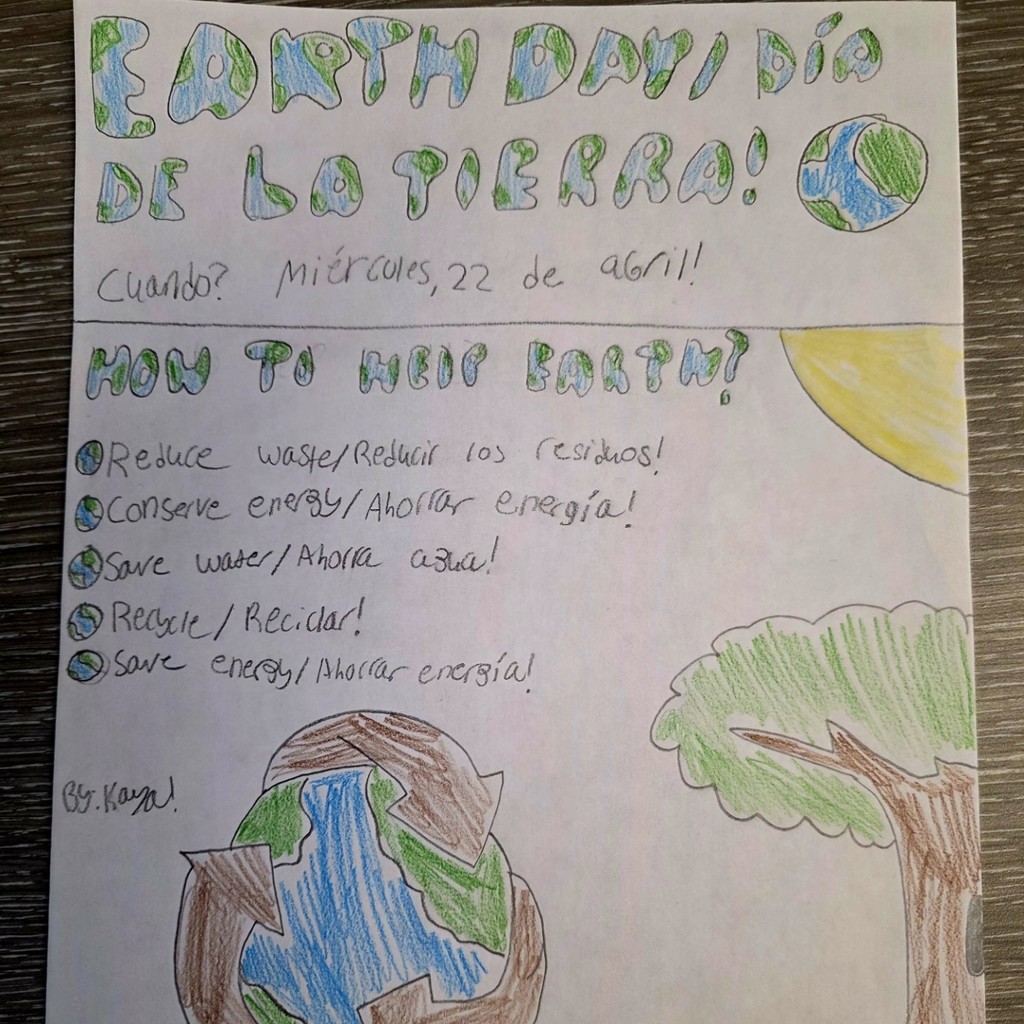 EARTH DAY/DÍA
DE LA TIERRA!
Cuando? Miércoles, 22 de abril!
HOW TO HElP EARTH?
Reduce waste/Reducir los residuos!
Conserve energy/Ahorrar energía!
Save water/Ahorra agua!
Recycle/Reciclar!
Save energy/Ahorrar energía!
By: Kaya!